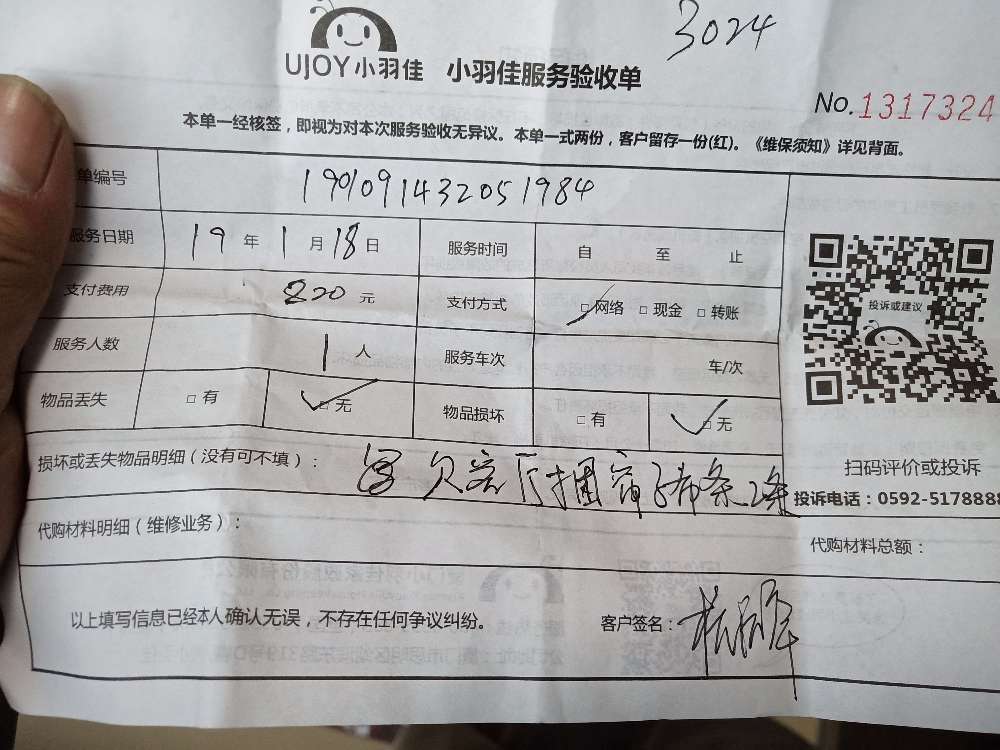 3024
UJOY小羽佳 小羽佳服务验收单
No.1317324
本单一经核签，即视为对本次服务验收无异议。本单一式两份，客户留存一份(红)。《维保须知》详见背面。
单编号 1901091432051984
服务日期 19 年 1 月 18 日 服务时间 自 至 止
支付费用 220 元 支付方式 □网络 □现金 □转账
投诉或建议
服务人数 1 人 服务车次 车/次
物品丢失 □有 □无 物品损坏 □有 □无
损坏或丢失物品明细（没有可不填）： 欠客厅捆窗子布条2条
扫码评价或投诉
投诉电话：0592-5178888
代购材料明细（维修业务）： 代购材料总额：
以上填写信息已经本人确认无误，不存在任何争议纠纷。 客户签名：